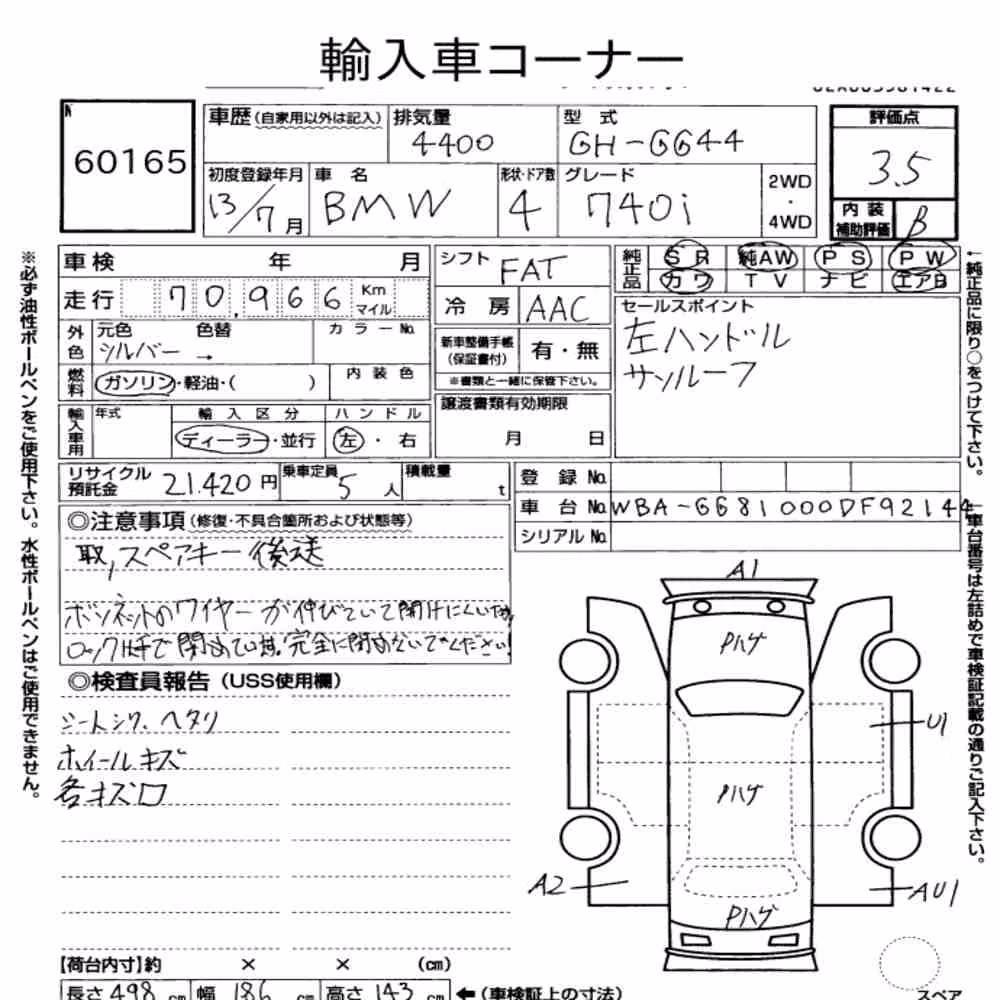 輸入車コーナー
60165
車歴 (自家用以外は記入) 排気量 型式 評価点
4400 GH-GG44 3.5
初度登録年月 車名 形状・ドア数 グレード 2WD・4WD
13/7月 BMW 4 740i
内装補助評価 B
車検 年 月 シフト FAT 純正品 SR 純AW PS PW
カワ TV ナビ エアB
走行 70,966 Km マイル 冷房 AAC
セールスポイント
左ハンドル
サンルーフ
外色 元色 色替 カラーNo.
シルバー →
新車整備手帳(保証書付) 有・無
※書類と一緒に保管下さい。
燃料 ガソリン・軽油・( ) 内装色
譲渡書類有効期限
月 日
輸入車用 年式 輸入区分 ハンドル
ディーラー・並行 左・右
リサイクル預託金 21.420円 乗車定員 5人 積載量 t
登録No.
車台No. WBA-GG81000DF92144
シリアルNo.
◎注意事項(修復・不具合箇所および状態等)
取,スペアキー後送
ボンネットのワイヤーが伸びていて開けにくい
ロック 閉めています。完全に閉めないでください!
◎検査員報告(USS使用欄)
シートシワ、ヘタリ
ホイールキズ
各キズ
A1
Pハゲ
U1
Pハゲ
A2
AU1
Pハゲ
スペア
【荷台内寸】約 × × (cm)
長さ 498 cm 幅 186 cm 高さ 143 cm ←(車検証上の寸法)
※必ず油性ボールペンをご使用下さい。水性ボールペンはご使用できません。
←純正品に限り○をつけて下さい。
車台番号は左詰めで車検証記載の通りご記入下さい。